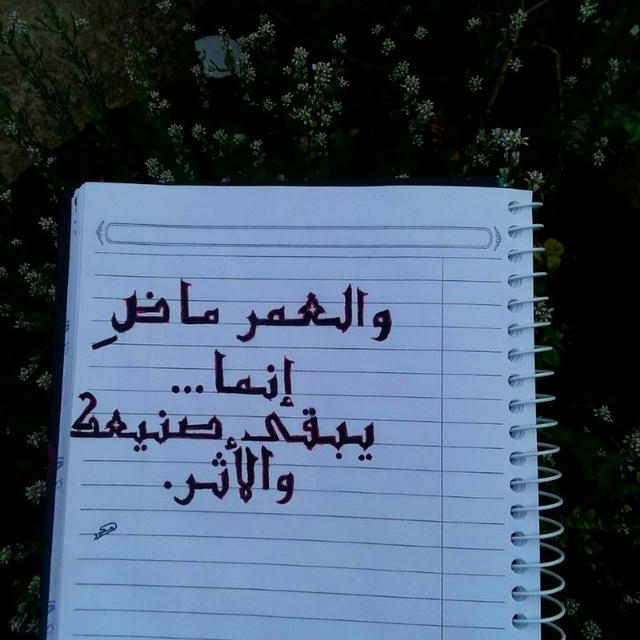 والعمر ماضٍ
إنما...
يبقى صنيعك
والأثر.